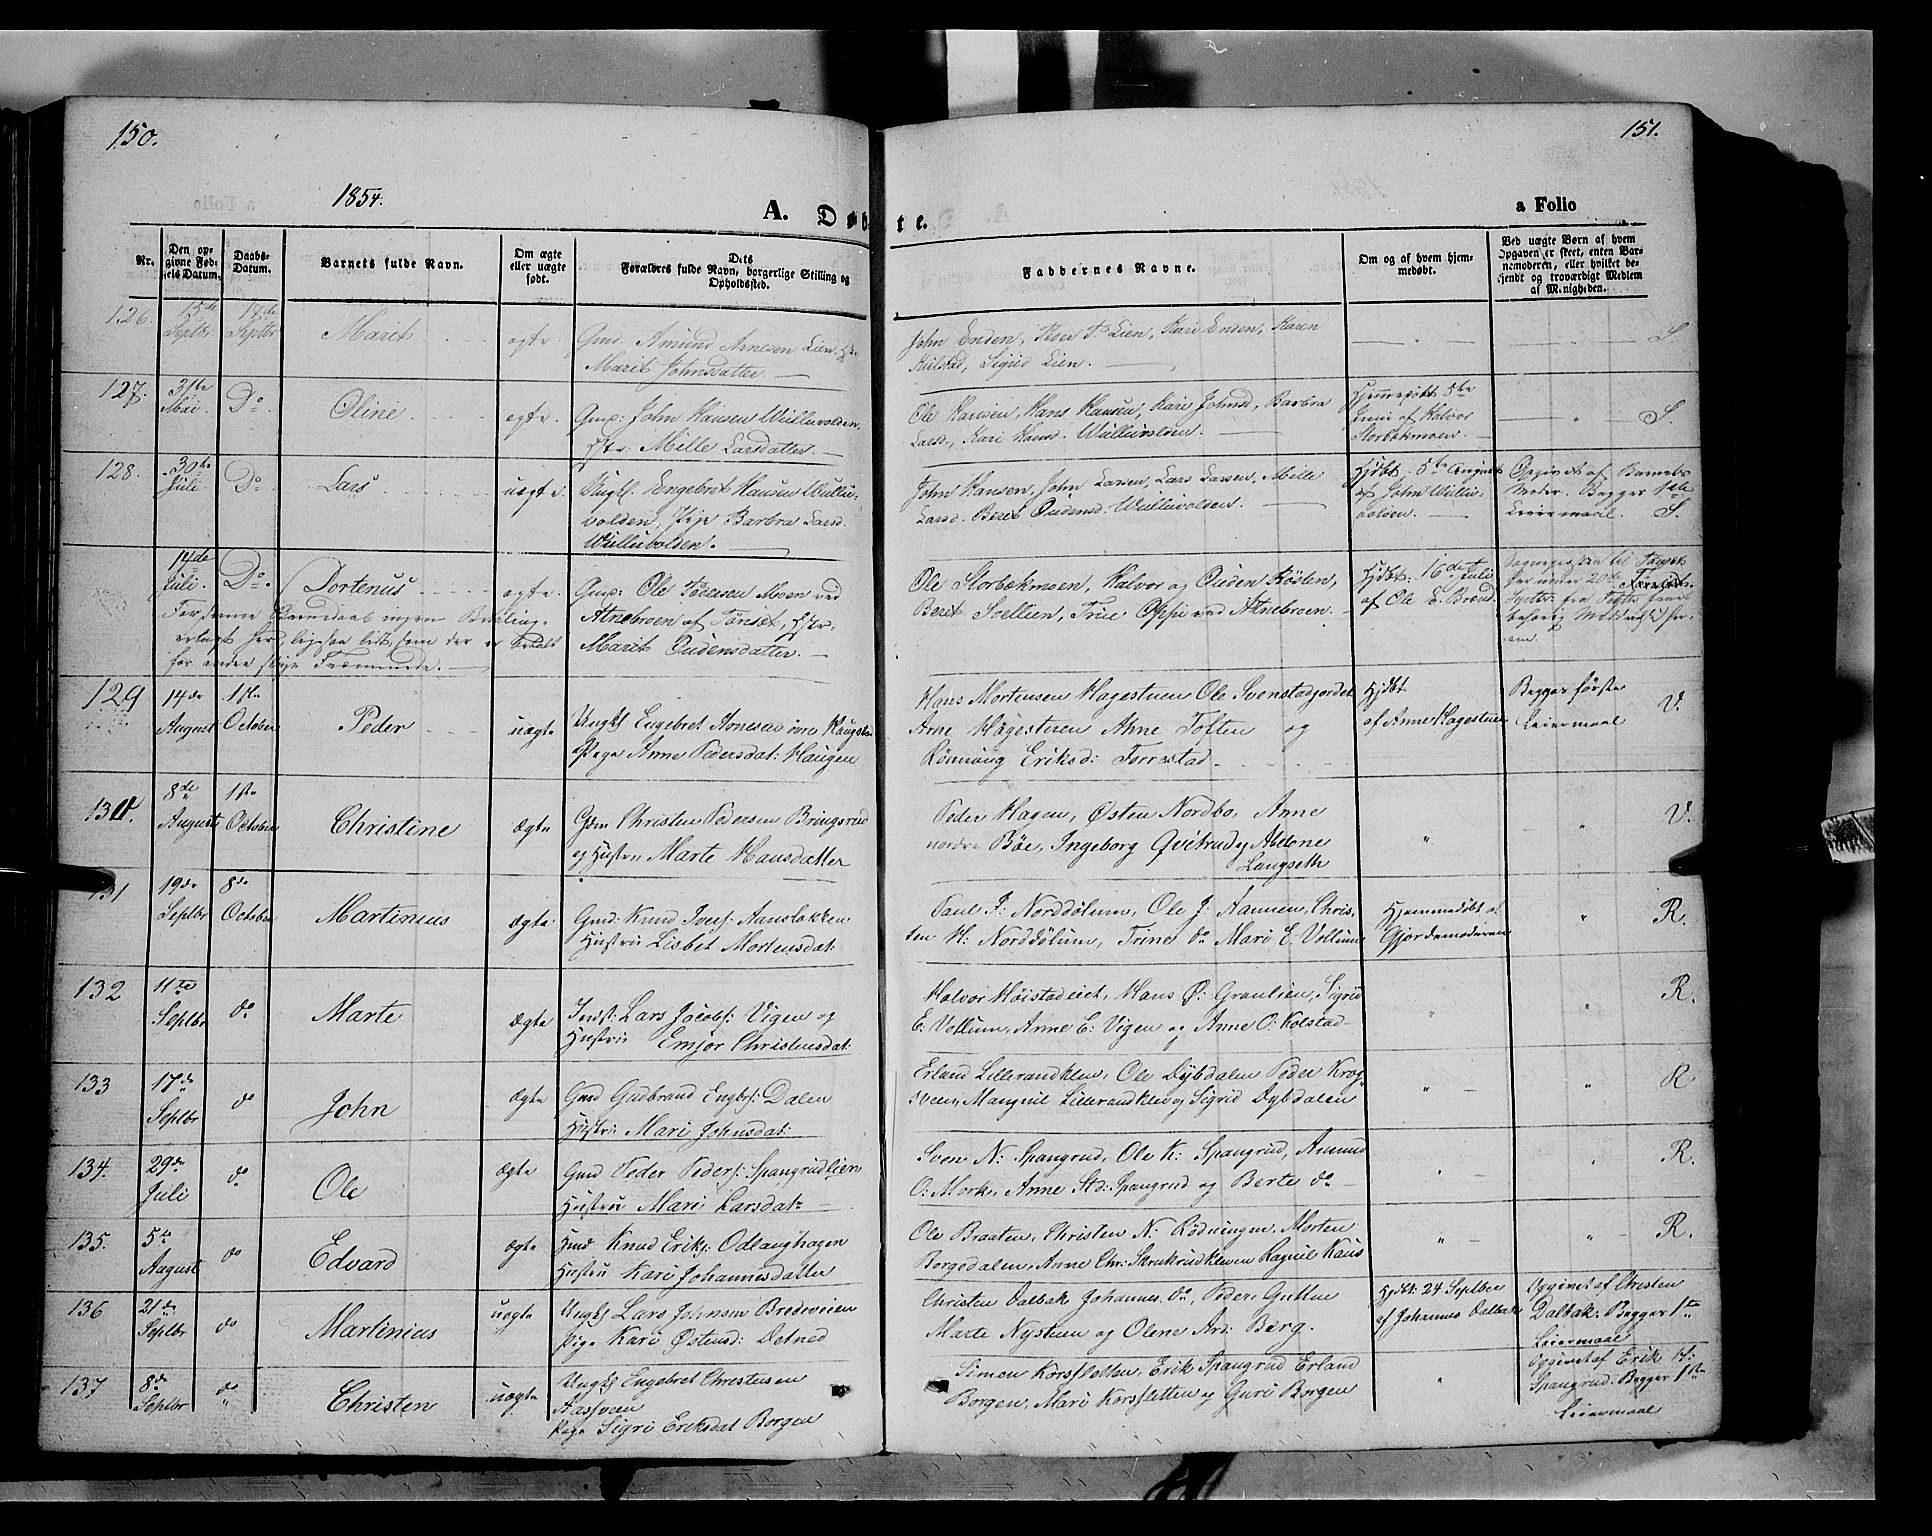 150.
151.
1854.
A. Døbte.
a Folio
Nr.
Den opgivne Fødsels Datum.
Daabs-Datum.
Barnets fulde Navn.
Om ægte eller uægte født.
Dets Forældres fulde Navn, borgerlige Stilling og Opholdssted.
Faddernes Navne.
Om og af hvem hjemmedøbt.
Ved uægte Børn af hvem Opgaven er skeet, enten Barnemoderen, eller hvilket bekjendt og troværdigt Medlem af Menigheden.
126. 15de Septbr 18de Septbr Marit ægte Gmd. Amund Arnesen Lien
Marit Johnsdatter.
John Enden, Peder P. Lien, Kari Enden, Karen
Kulstad, Sigrid Lien. S.
127. 31te Mai. Do. Oline ægte. Gmd: John Hansen Wulluvolden.
Hstr: Mille Larsdatter.
Ole Hansen, Hans Hansen, Kari Johnsd, Barbra
Larsd., Kari Hansd. Wulluvolden.
Hjemmedøbt 5te
Juni af Halvor
Storbækmoen. S.
128. 30te Juli Do Lars uægte. Ungkl. Engebret Hansen Wullu-
volden, Pige Barbra Larsd.
Wulluvolden.
John Hansen, John Larsen, Lars Larsen, Mille
Larsd. Beret Oudensd. Wulluvolden.
Hjdbt. 5te August
af John Wullu-
volden.
Opgivet af Barnets
Moder. Begges 1ste
Leiermaal. S.
14de Juli. Do. Dortenus ægte. Gmd: Ole Pedersen Moen ved
Atnebroen af Tönset, Hstr:
Marit Oudensdatter.
For denne Barnedaab ingen Betaling
for andre slige Fremmede.
Ole Storbækmoen, Halvor og Ouden Kösten,
Beret Sollien, True Oppi ved Atnebroen.
Hjdbt: 16de Juli
af Ole E. Brænd.
129 14de August 1ste October Peder uægte Ungk Engebret Arnesen övre Haugstad
Pige Anne Pedersdat: Haugen
Hans Mortensen Hagestuen Ole Svenstadjordet
Arne Hagestuen Anne Toften og
Rönnaug Eriksd: Torrestad
Hjdbt
af Anne Hagestuen
Begges förste
Leiermaal V.
130. 8de August 1ste October Christine Ægte Gdm Christen Pedersen Bringsrud
og Hustru Marte Hansdatter
Peder Hagen, Østen Nordbo, Anne
nordre Böe, Ingeborg Qvitrud og Abelone
Langseth V.
131 19de Septbr 8de October Martinius Ægte Gmd: Knud Ivers: Aanslökken
Hustru Lisbet Mortensdat:
Paul P: Norddölum, Ole J: Aannen, Chris-
ten H: Norddölum, Trine do Mari E. Vollum
Hjemmedöbt af
Gjordemoderen R.
132 11te Septbr do Marte Ægte Inds: Lars Jacobs: Vigen og
Hustru Emjor Christensdat:
Halvor Höistadeiet, Hans Ø: Graulien, Sigrid
E: Vollum, Anne E: Vigen og Anne O: Kolstad R.
133 17de Septbr do John ægte Gmd Gudbrand Engbrs: Dalen
Hustru Mari Johnsdat:
Erland Lillerandklev, Ole Dybdalen Peder Krog-
sveen, Mangnil Lillerandklev og Sigrid Dybdalen R
134. 29de Juli do Ole ægte Gmd Peder Peders: Spangrudlien
Hustru Mari Larsdat:
Sven N: Spangrud, Ole K: Spangrud, Amund
O: Mork, Anne Std: Spangrud og Berte do R.
135. 5te August do Edvard ægte Hmd Knud Eriks: Odlaughagen
Hustru Kari Johannesdatter
Ole Braaten, Christen N: Rödningen, Morten
Borgedalen, Anne Chr: Skrukrudkleven Ragnil Kaus R.
136 21de Septbr do Martinius uægte Ungk Lars Johnsen Bredeveien
Pige Kari Østensd: Detned
Christen Dalbak Johannes do Peder Gutton
Marte Nystuen og Olene Ard: Berg.
Hjdbt: 24 Septbr
af Johannes Dalbak
Opgivet af Christen
Dalbak: Begges 1te
Leiermaal
137 8de Septbr do Christen uægte Ungk Engebret Christensen
Aassveen
Pige Sigri Eriksdat Borgen
Simen Korsfletten, Erik Spangrud Erland
Borgen, Mari Korsfletten og Guri Borgen
Opgivet af Erik H:
Spangrud: Begges 1ste
Leiermaal